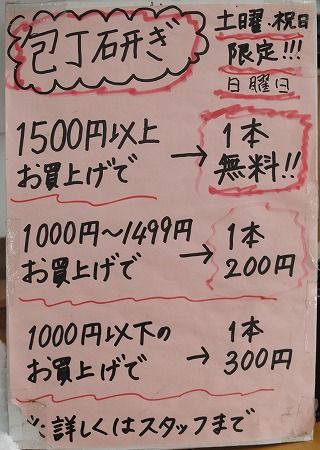 包丁研ぎ
土曜・祝日
限定!!!
日曜日
1500円以上
お買上げで
→
1本
無料!!
1000円〜1499円
お買上げで
→
1本
200円
1000円以下の
お買上げで
→
1本
300円
※詳しくはスタッフまで